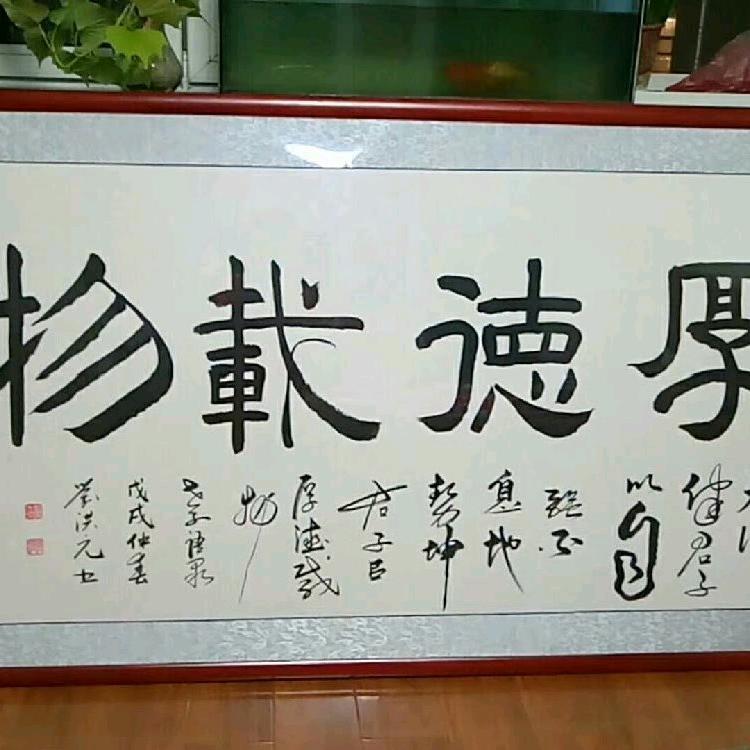 厚德載物
行
健君子
以自
强不
息地
势坤
君子以
厚德载
物
戊戌仲春
洪元书